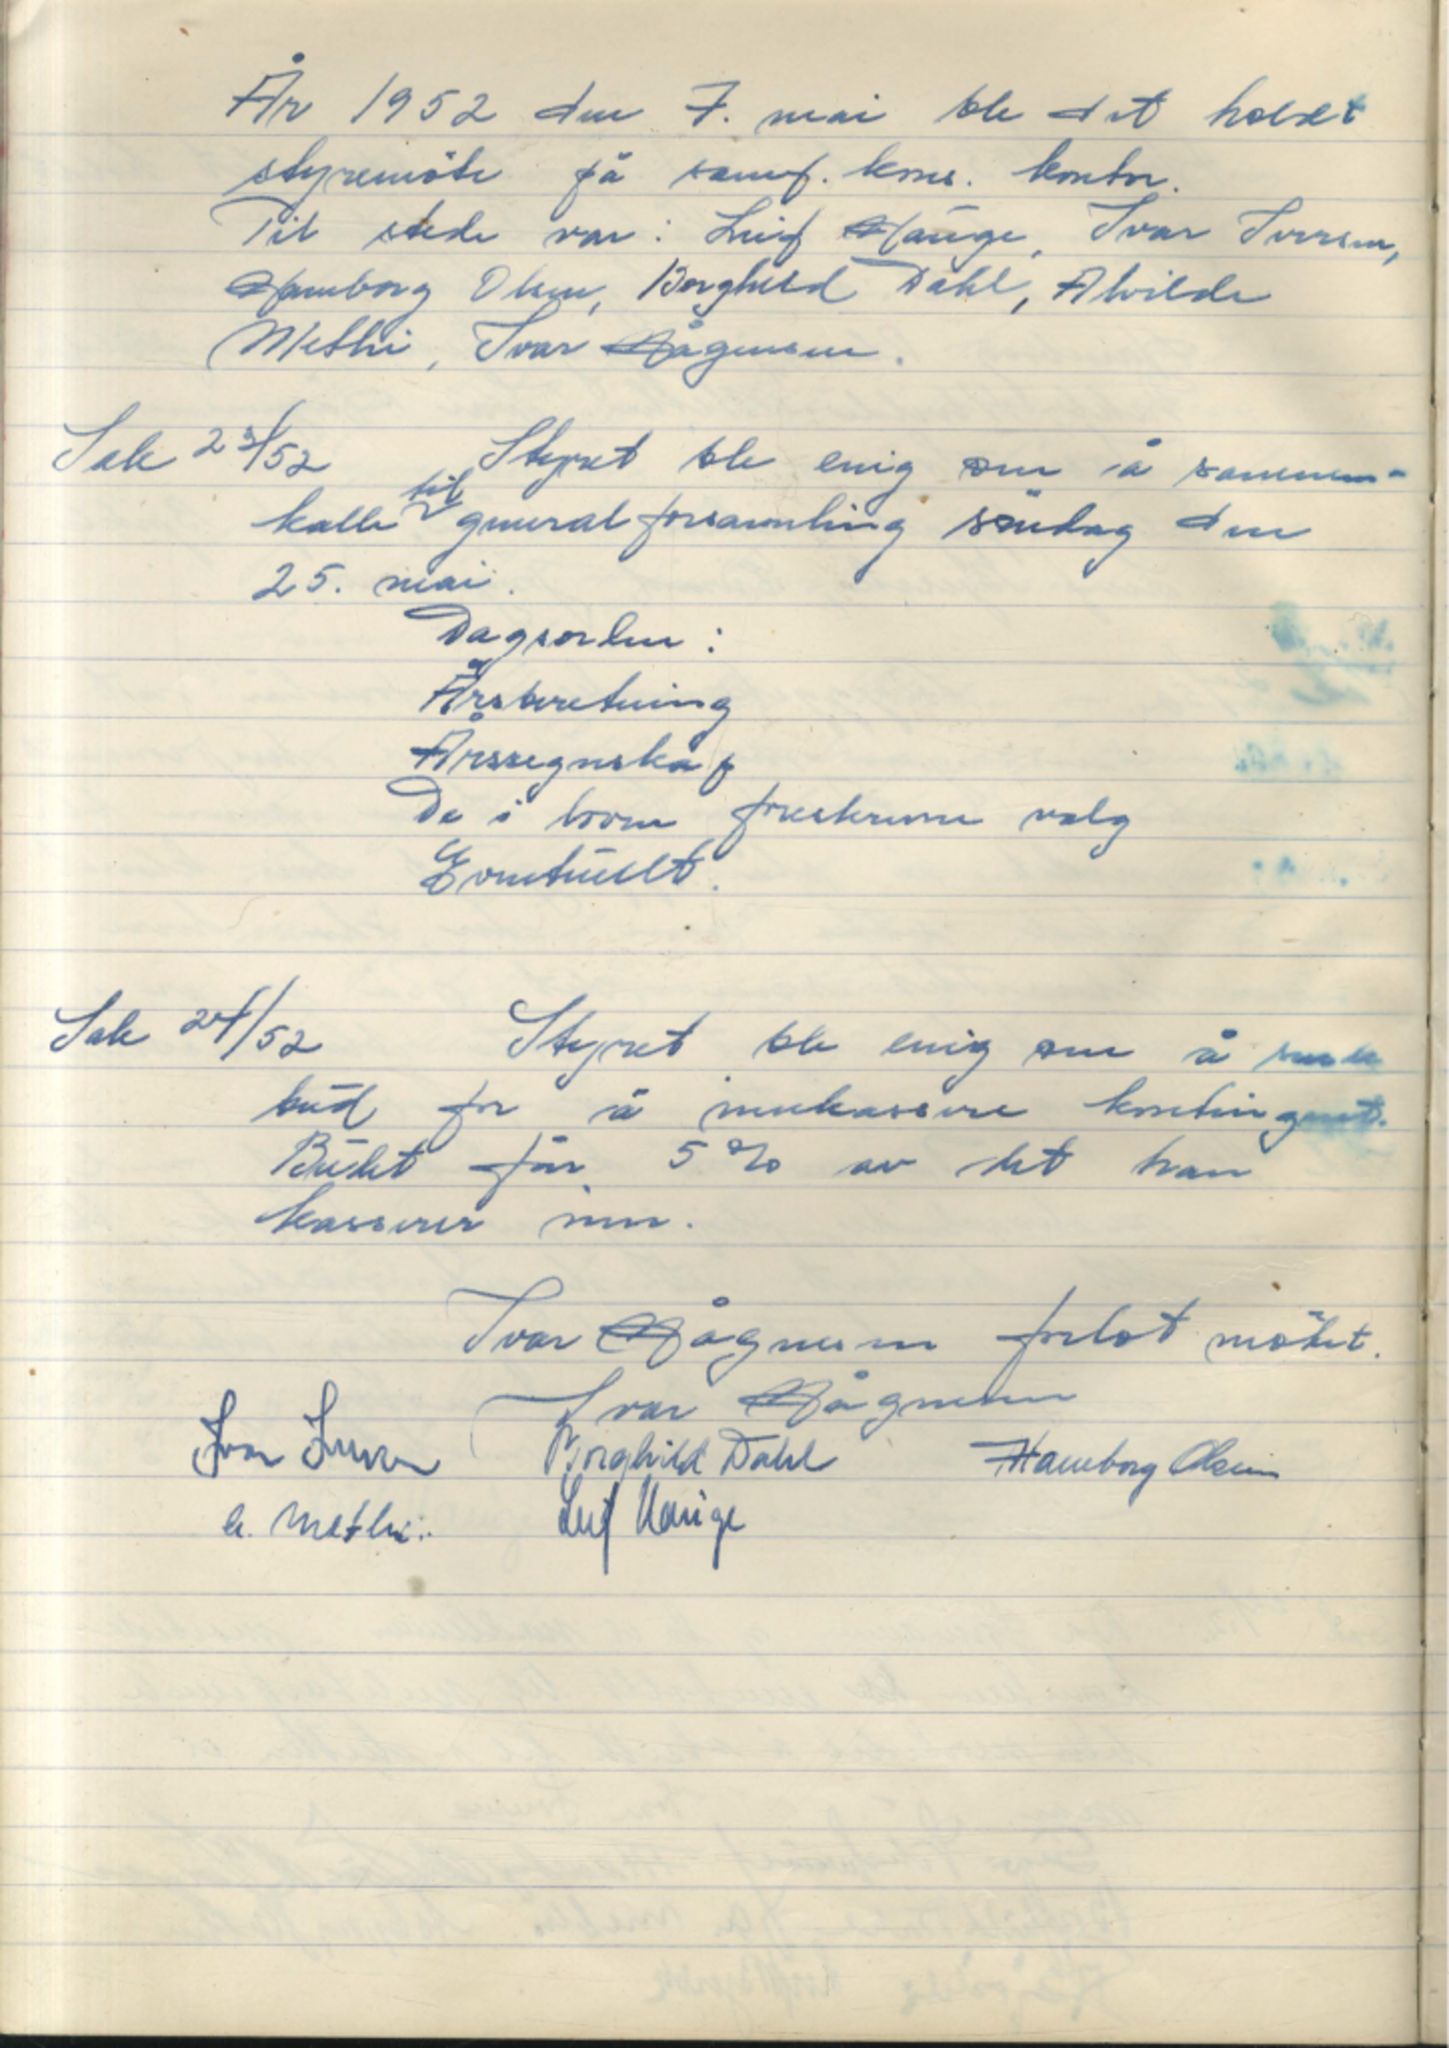 År 1952 den 7. mai ble det holdt
styremöte på samf. kons. kontor.
Til stede var: Leif Hauge, Ivar Iversen,
Hamborg Olsen, Borghild Dahl, Alvilde
Methi, Ivar Hågensen.
Sak 23/52 Styret ble enig om å sammen-
kalle til generalforsamling söndag den
25. mai.
Dagsorden:
Årsberetning
Årsregnskap
De i loven foreskrevne valg
Eventuellt.
Sak 24/52 Styret ble enig om å sende
bud for å innkassere kontingent.
Budet får 5% av det han
kasserer inn.
Ivar Hågensen forlot mötet.
Ivar Hågensen
Ivar Iversen Borghild Dahl Hamborg Olsen
A. Methi. Leif Hauge